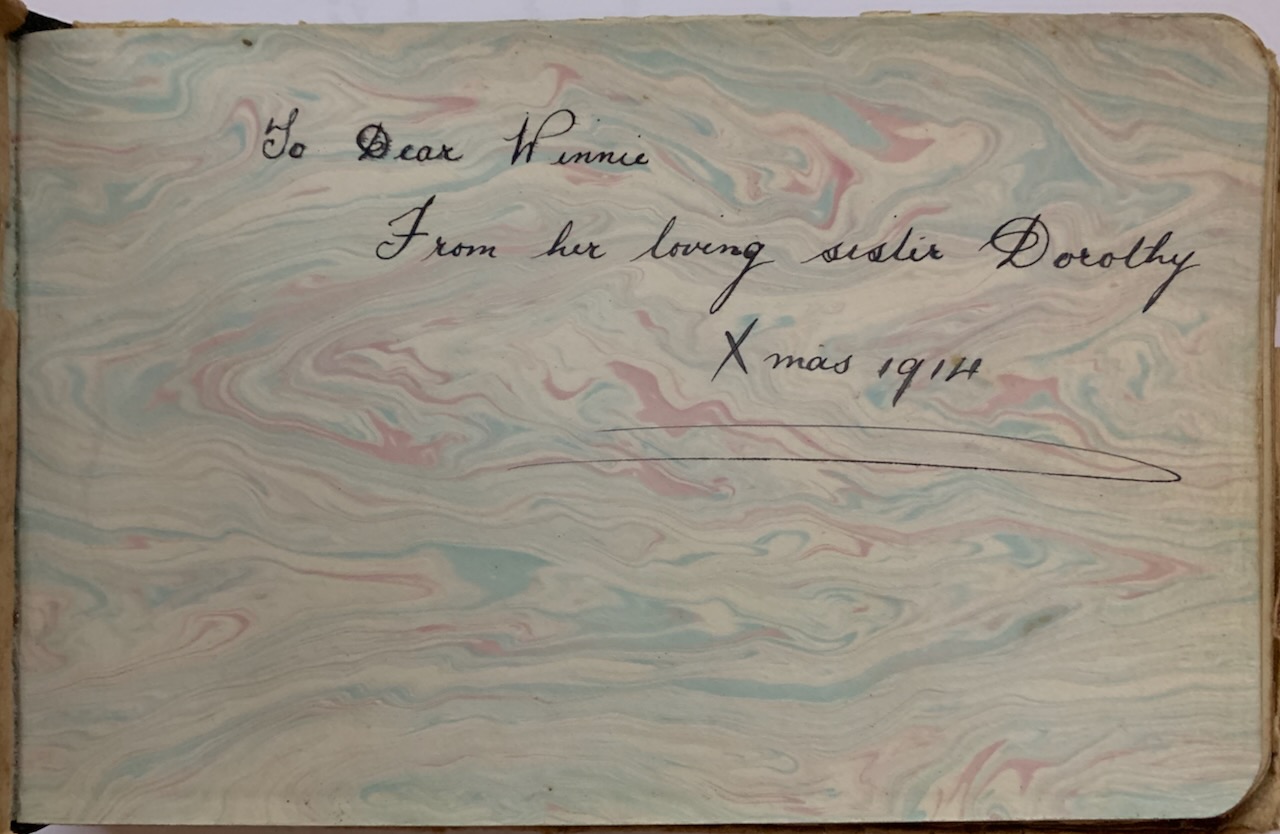 To Dear Winnie
From her loving sister Dorothy
Xmas 1914